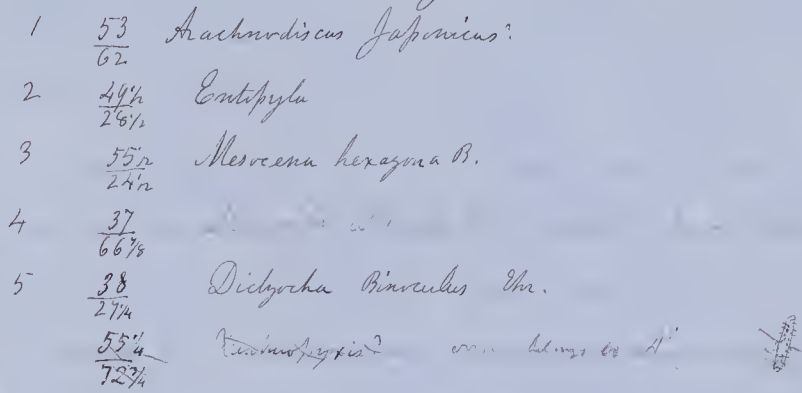 1 53/62 Arachnodiscus Japonicus?
2 49½/28½ Entopyla
3 55½/24½ Mesocena hexagona B.
4 37/66⅞
5 38/27¼ Dictyocha Binoculus Ehr.
55¼/72¾ belongs to 4